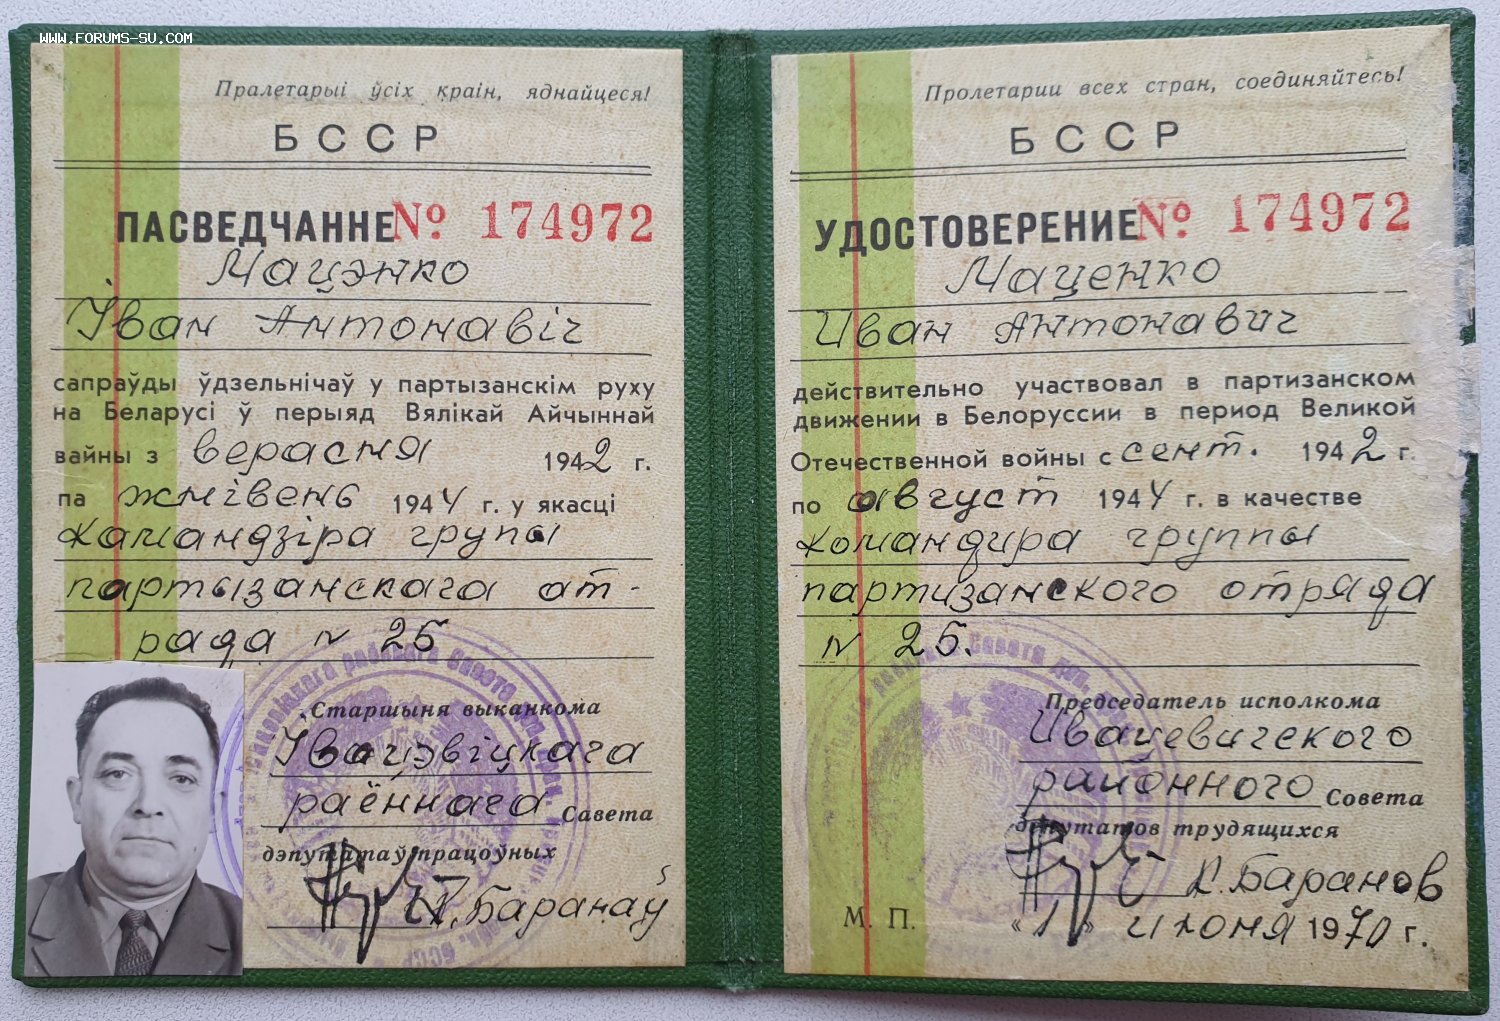 www.forums-su.com
Пралетарыі ўсіх краін, яднайцеся!
БССР
ПАСВЕДЧАННЕ № 174972
Мацэнко
Іван Антонавіч
сапраўды ўдзельнічаў у партызанскім руху
на Беларусі ў перыяд Вялікай Айчыннай
вайны з верасня 1942 г.
па жнівень 1944 г. у якасці
камандзіра групы
партызанскага ат-
рада N 25
Старшыня выканкома
Івацэвіцкага
раённага Савета
дэпутатаў працоўных
Баранаў
Пролетарии всех стран, соединяйтесь!
БССР
УДОСТОВЕРЕНИЕ № 174972
Маценко
Иван Антонавич
действительно участвовал в партизанском
движении в Белоруссии в период Великой
Отечественной войны с сент. 1942 г.
по август 1944 г. в качестве
командира группы
партизанского отряда
N 25.
Председатель исполкома
Ивацевичского
районного Совета
депутатов трудящихся
К. Баранов
М. П. «1» июня 1970 г.